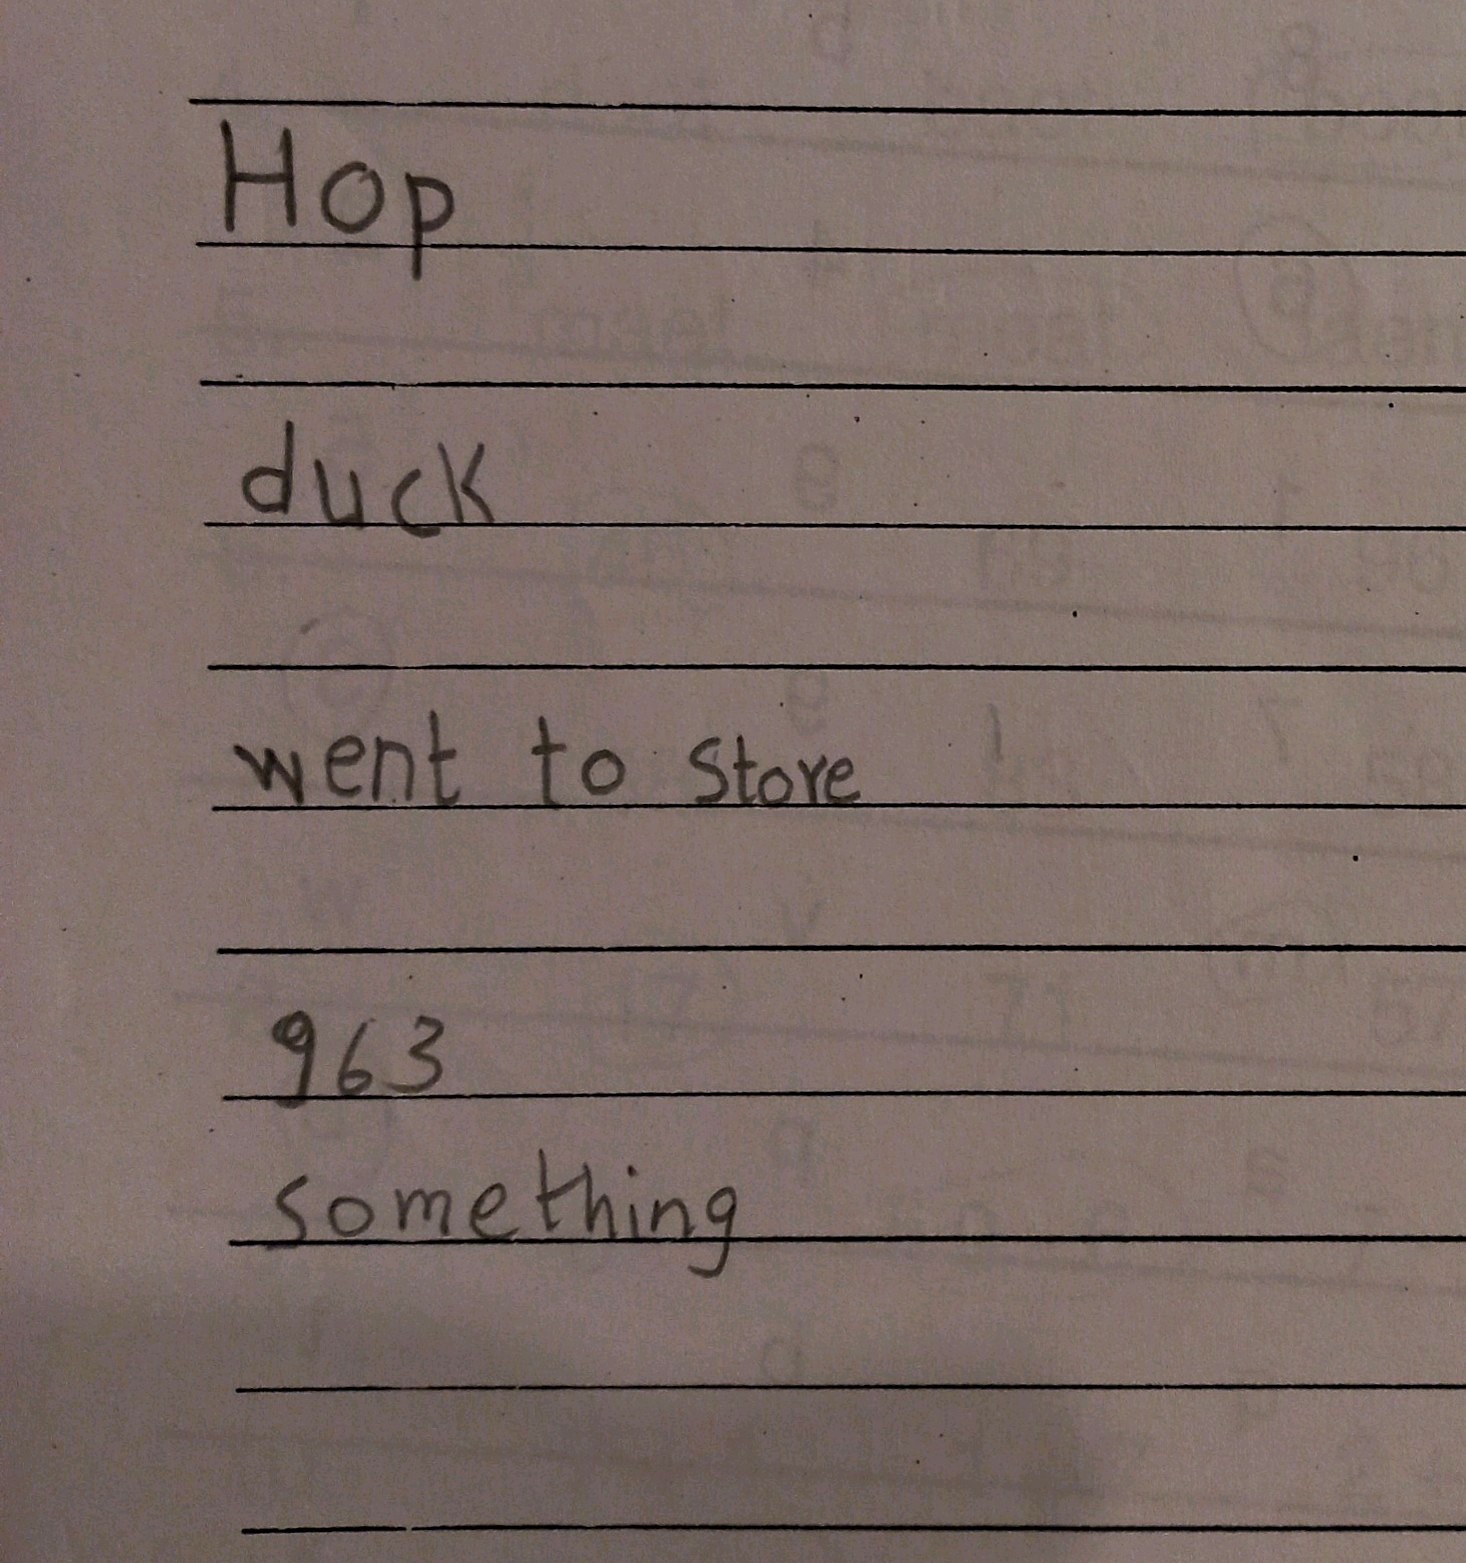 Hop
duck
went to store
963
something